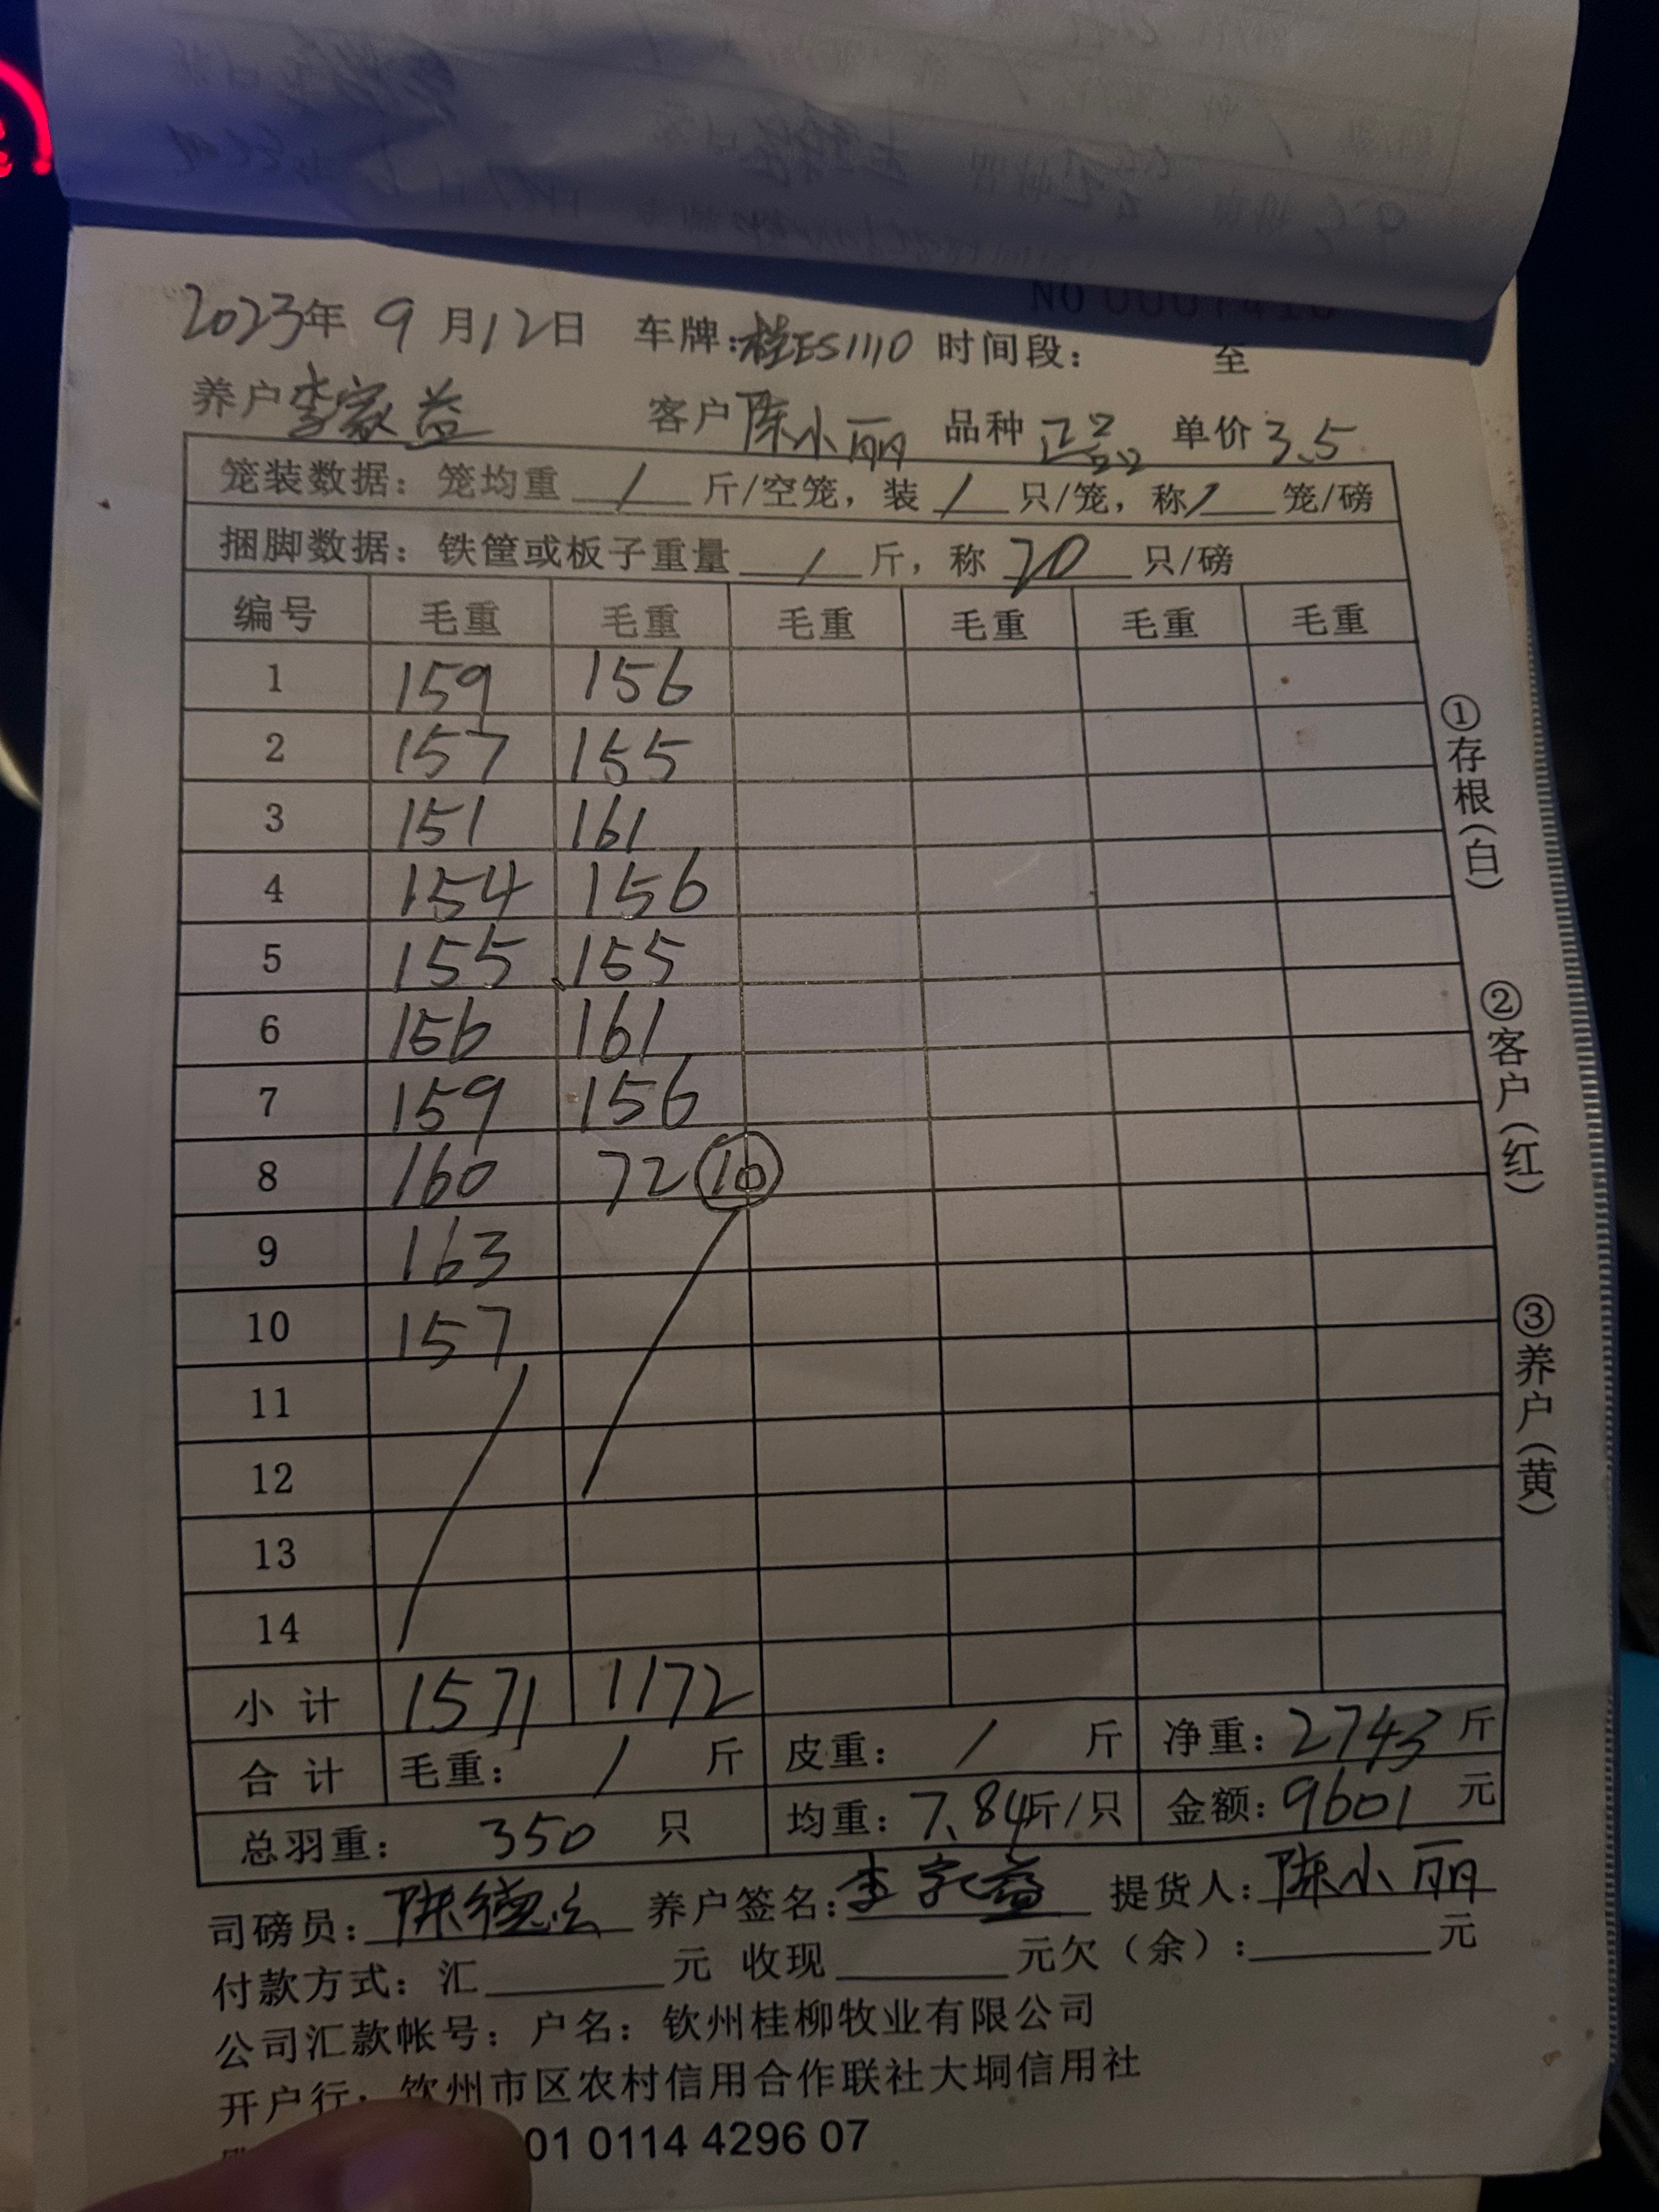 2023年 9 月12日 车牌:桂ES1110 时间段: 至
养户李家益 客户陈小丽 品种 正品 单价3.5
笼装数据: 笼均重 / 斤/空笼, 装 / 只/笼, 称 / 笼/磅
捆脚数据: 铁筐或板子重量 / 斤, 称 20 只/磅
编号 毛重 毛重 毛重 毛重 毛重 毛重
1 159 156
2 157 155
3 151 161
4 154 156
5 155 155
6 156 161
7 159 156
8 160 72 ⑩
9 163
10 157
11
12
13
14
小 计 1571 1172
合 计 毛重: / 斤 皮重: / 斤 净重: 2743 斤
总羽重: 350 只 均重: 7.84斤/只 金额: 9601 元
司磅员: 陈德 养户签名: 李家益 提货人: 陈小丽
付款方式: 汇 元 收现 元欠(余): 元
公司汇款帐号: 户名: 钦州桂柳牧业有限公司
开户行: 钦州市区农村信用合作联社大垌信用社
01 0114 4296 07
①存根(白)
②客户(红)
③养户(黄)